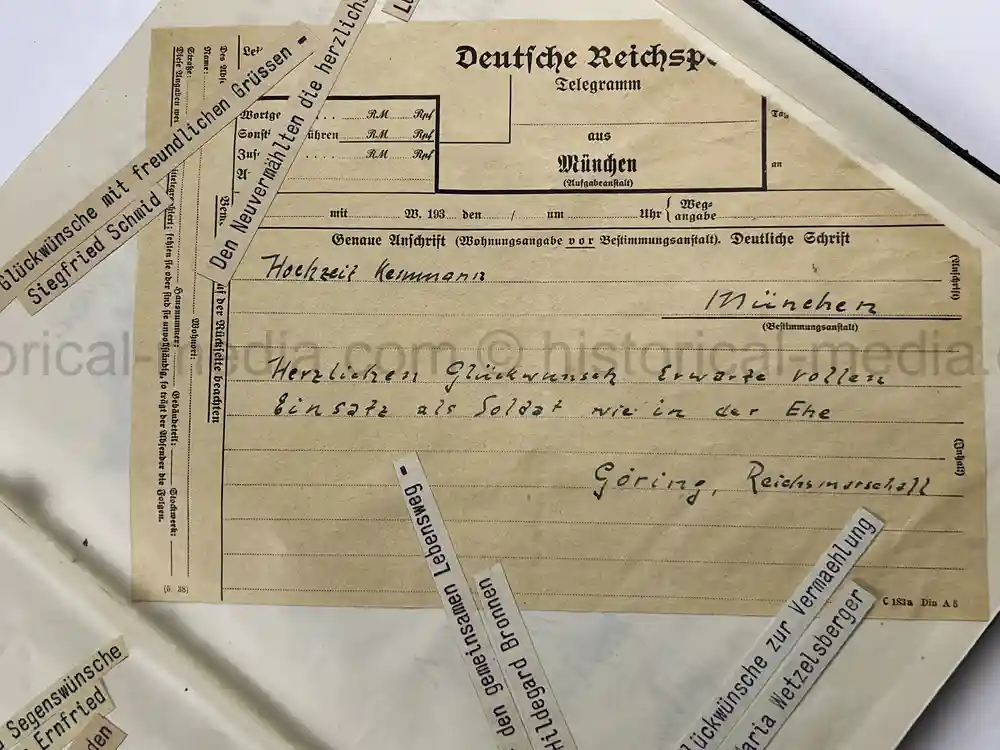 Deutsche Reichsp
Telegramm
aus
München
(Aufgabeanstalt)
Wortge
RM Rpf
Sonst ühren
RM Rpf
Zus
RM Rpf
A
an
mit W. 193 den / um Uhr { Weg-
angabe
Genaue Anschrift (Wohnungsangabe vor Bestimmungsanstalt). Deutliche Schrift
Hochzeit
(Anschrift)
München
(Bestimmungsanstalt)
Herzlichen Glückwunsch Erwarte vollen
Einsatz als Soldat wie in der Ehe
(Inhalt)
Göring, Reichsmarschall
C 183a Din A 5
(5. 38)
Name:
Straße:
Diese Angaben
Hausnummer:
Gebäudeteil:
Stockwerk:
fehlen sie oder sind sie unvollständig, so trägt der Absender die Folgen.
Wohnort:
auf der Rückseite beachten
Glückwünsche mit freundlichen Grüssen -
Siegfried Schmid
Den Neuvermählten die herzlichs
den gemeinsamen Lebensweg -
Hildegard Bronnen
lückwünsche zur Vermaehlung
aria Wetzelsberger
Segenswünsche
Ernfried
den
orical-media.com © historical-media.c